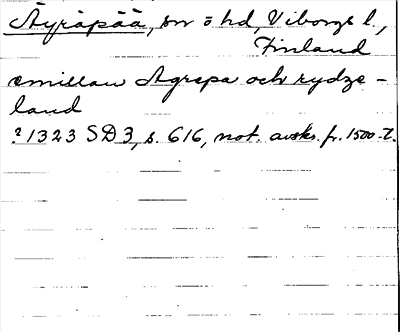 Äyräpää, sn o hd, Viborgs l.,
Finland
emillan Agrepa och rydze-
land
? 1323 SD 3, s. 616, not. avskr. fr. 1500-t.